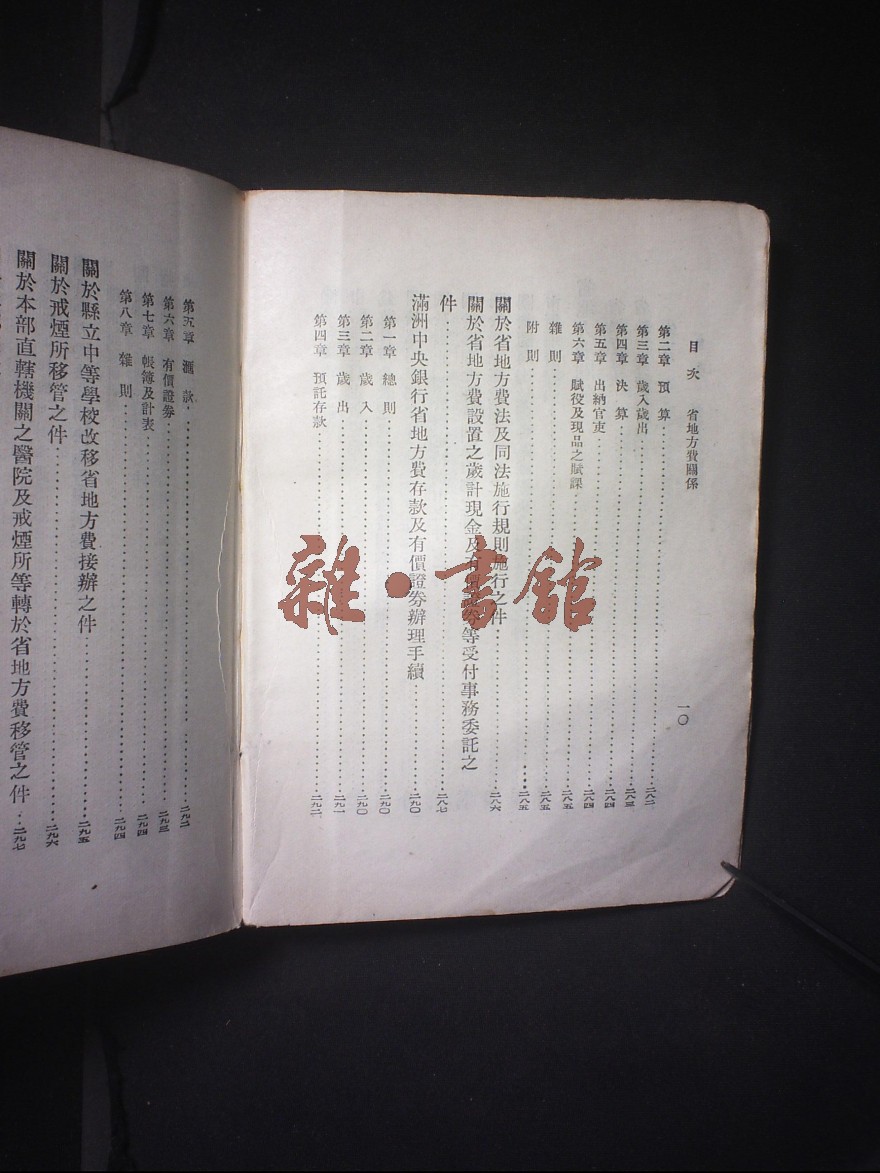 目次　省地方費關係
一〇
第二章　預算……二八二
第三章　歲入歲出……二八三
第四章　決算……二八四
第五章　出納官吏……二八四
第六章　賦役及現品之賦課……二八五
雜則……二八五
附則……二八五
關於省地方費法及同法施行規則施行之件……二八六
關於省地方費設置之歲計現金及有價證券等受付事務委託之
件……二八七
滿洲中央銀行省地方費存款及有價證券辦理手續……二九〇
第一章　總則……二九〇
第二章　歲入……二九〇
第三章　歲出……二九一
第四章　預託存款……二九二
第五章　滙款……二九二
第六章　有價證券……二九三
第七章　帳簿及計表……二九四
第八章　雜則……二九四
關於縣立中等學校改移省地方費接辦之件……二九五
關於戒煙所移管之件……二九六
關於本部直轄機關之醫院及戒煙所等轉於省地方費移管之件……二九七
雜·書館